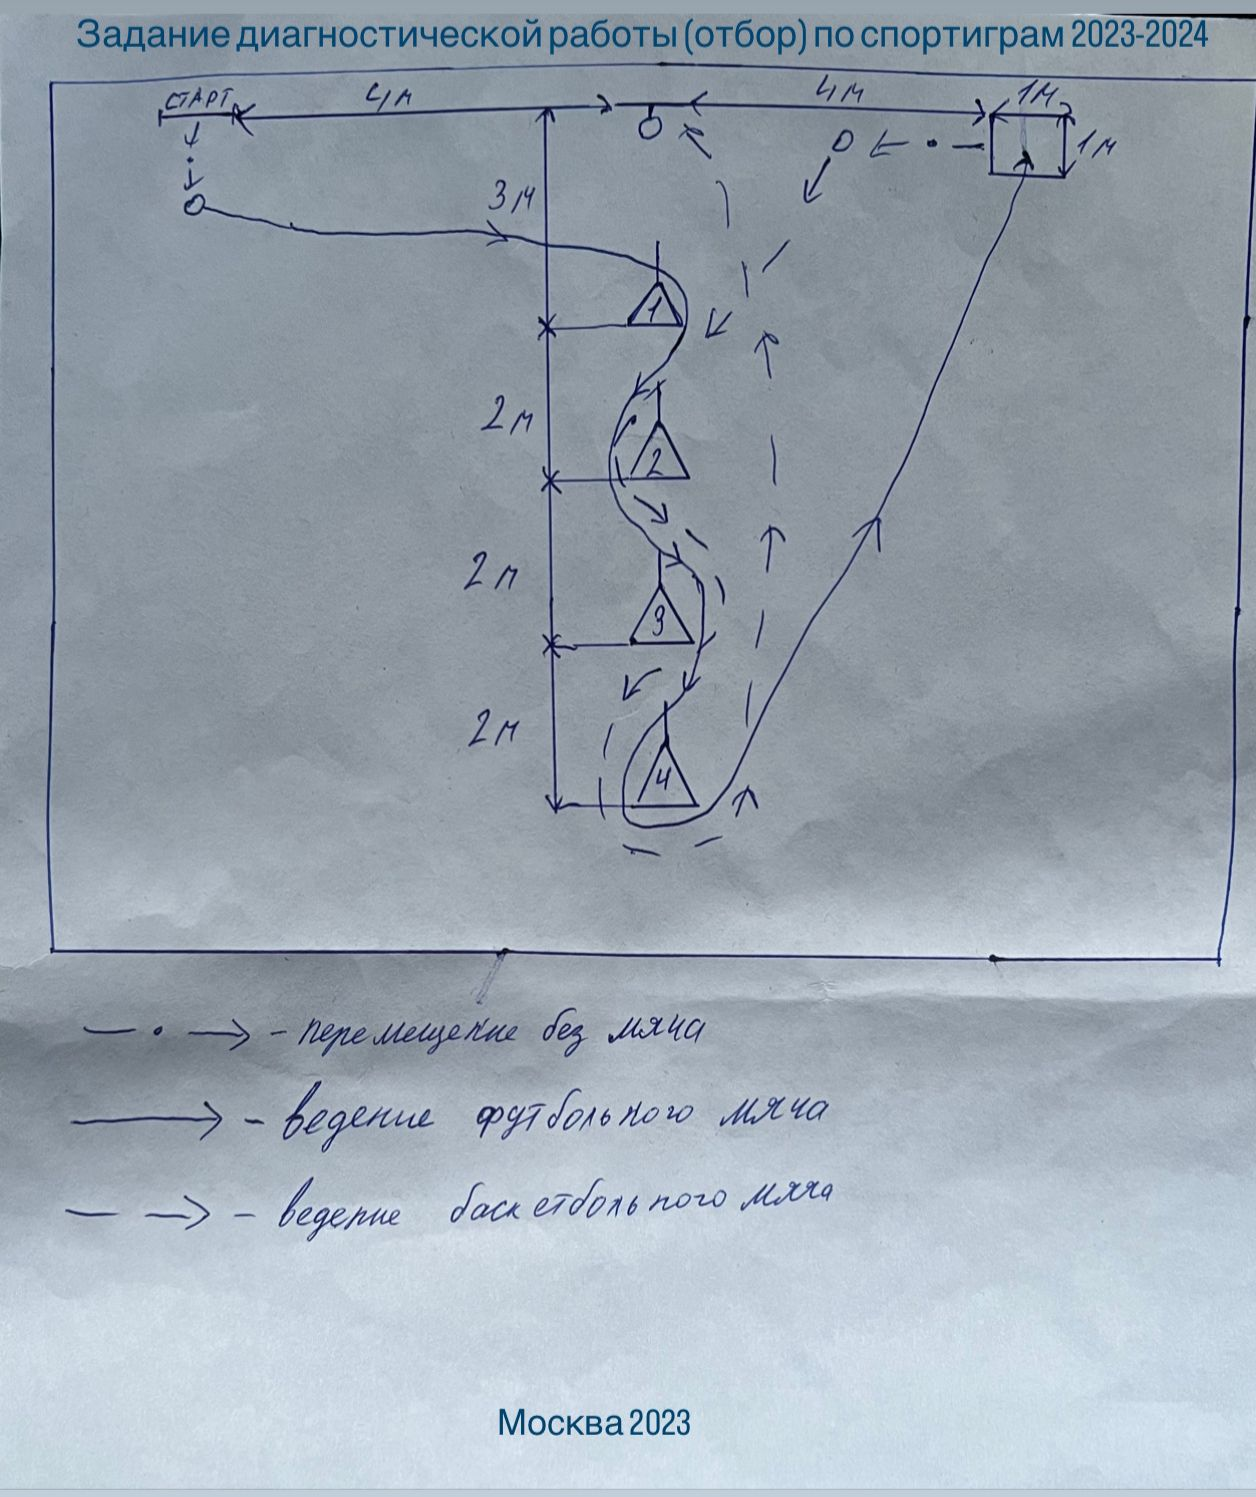 Задание диагностической работы (отбор) по спортиграм 2023-2024
СТАРТ
4м
4м
1м
1м
3м
1
2м
2
2м
3
2м
4
- перемещение без мяча
- ведение футбольного мяча
- ведение баскетбольного мяча
Москва 2023